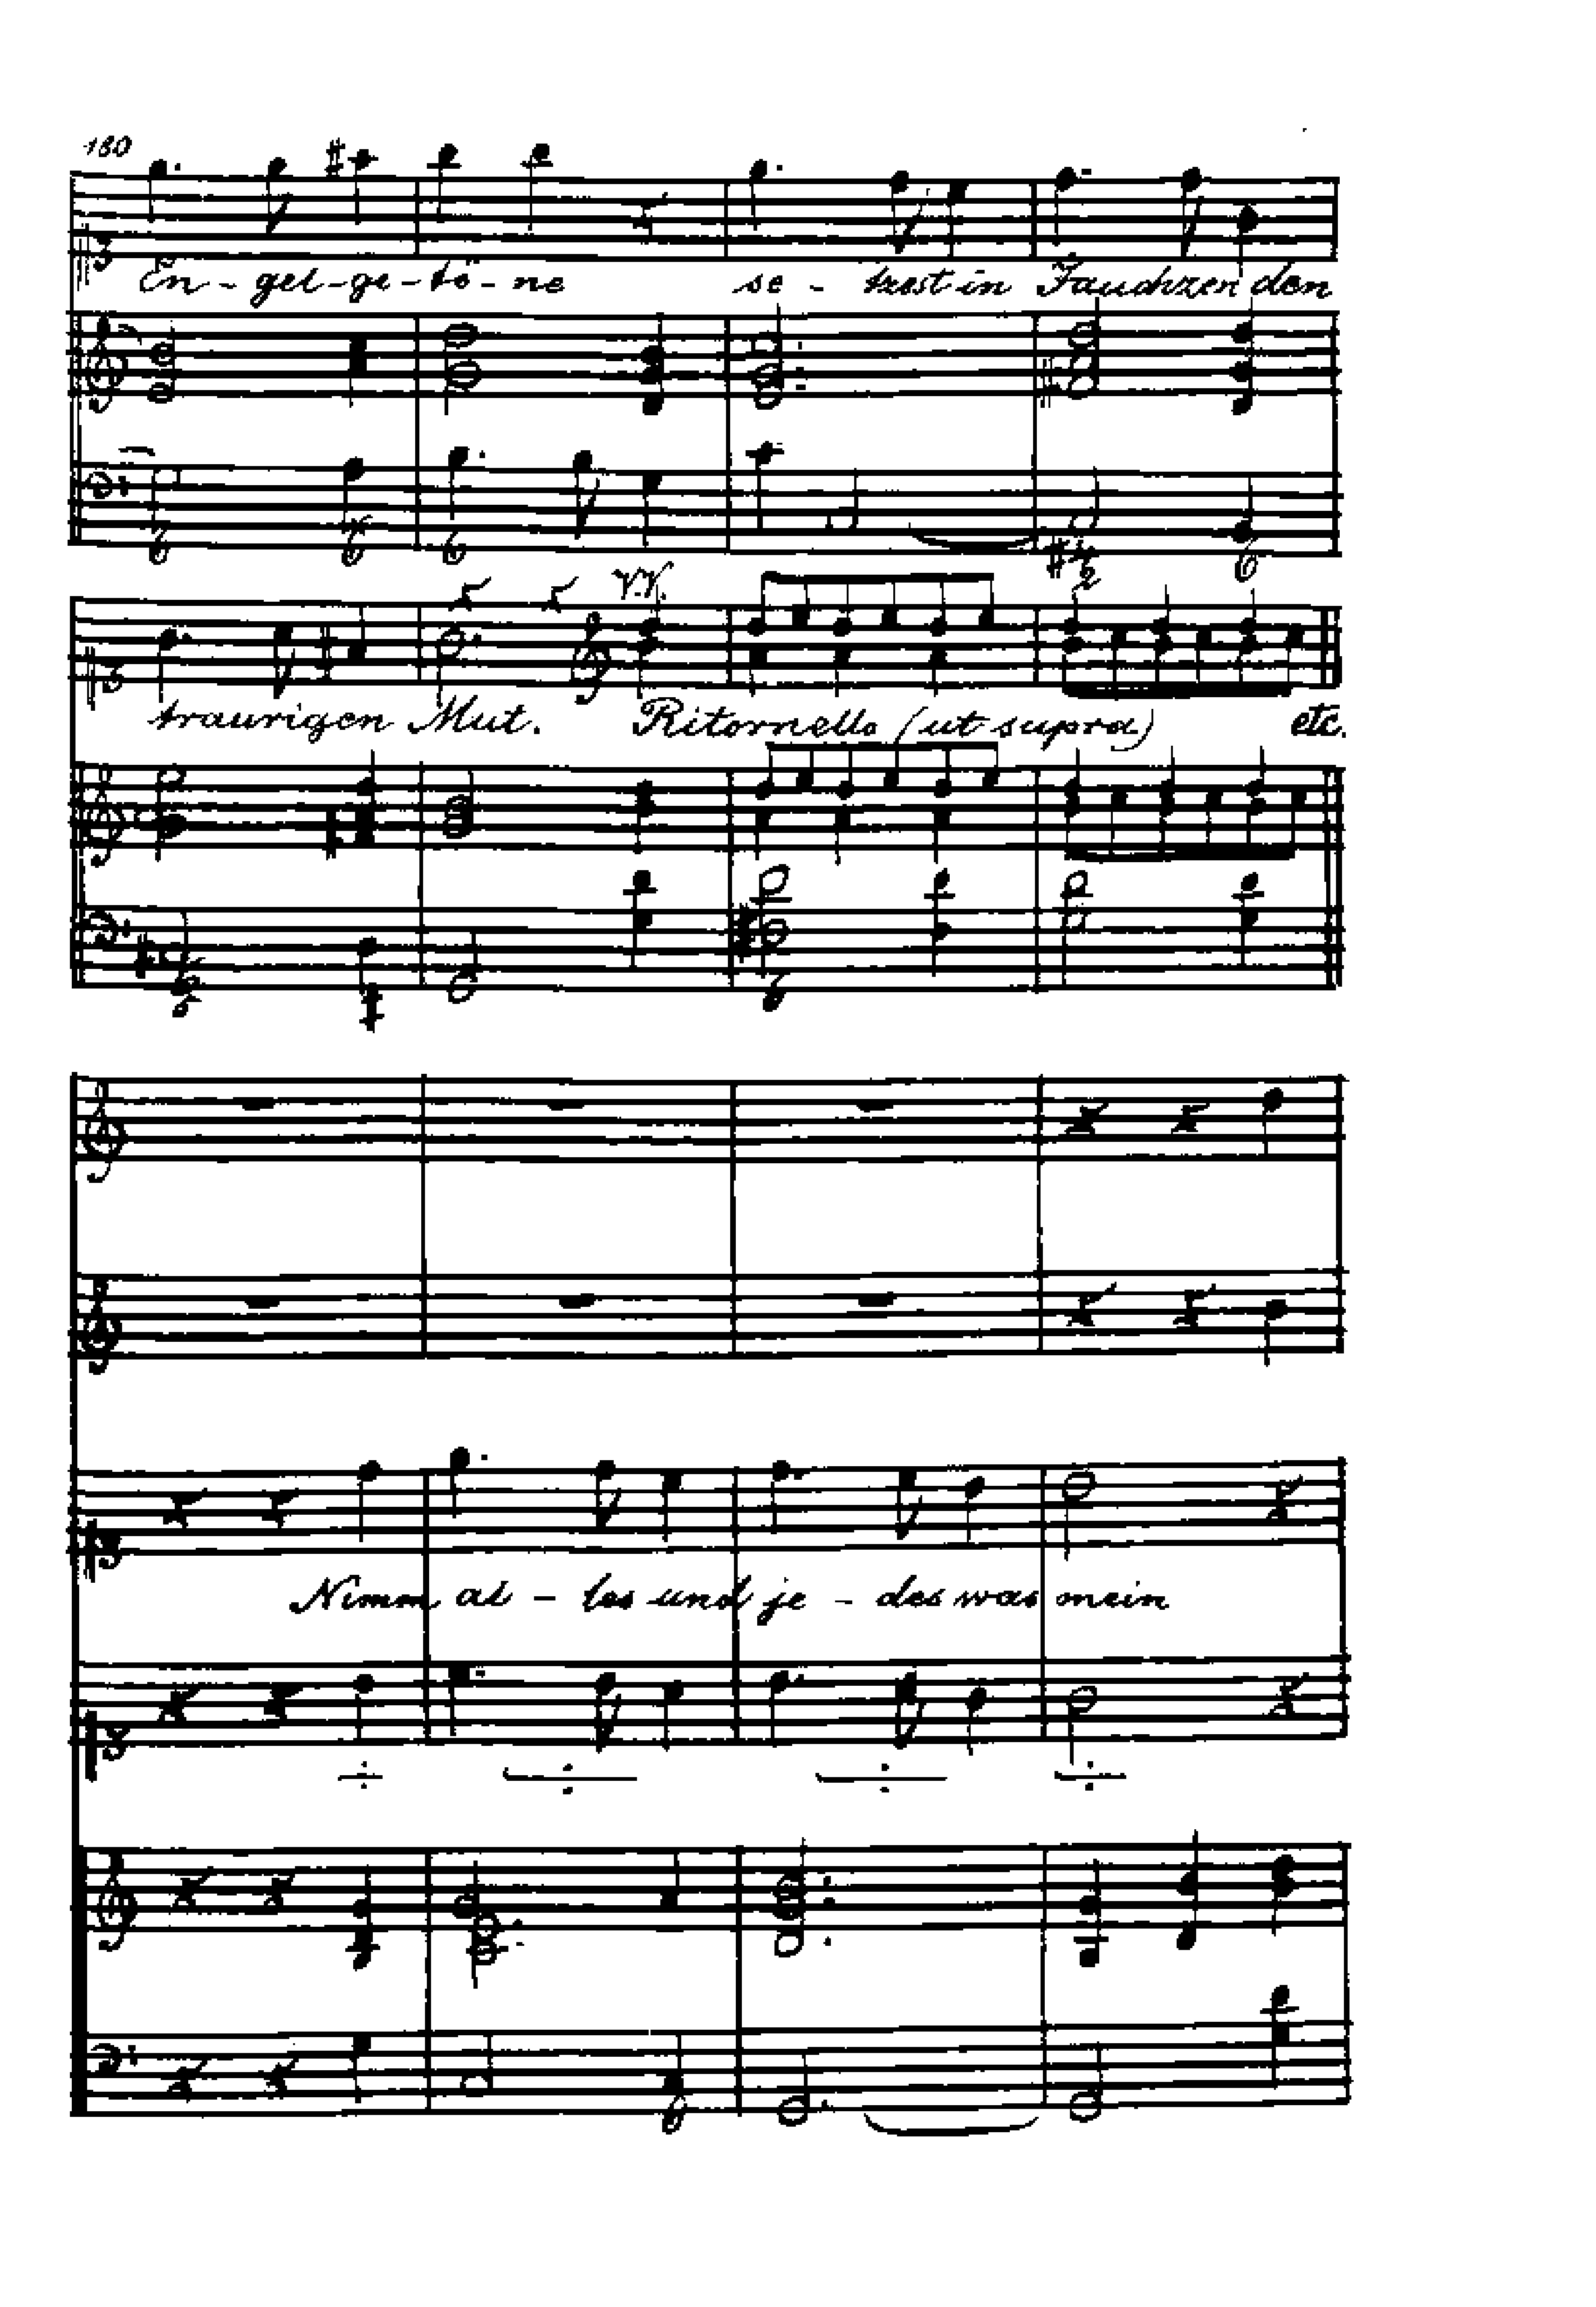 180
En- gel-ge-tö-ne se- tzest in Jauchzen den
6 6 6 #4 2 6
V.V.
traurigen Mut. Ritornello (ut supra) etc.
6
Nimm al - les und je - des was mein
6